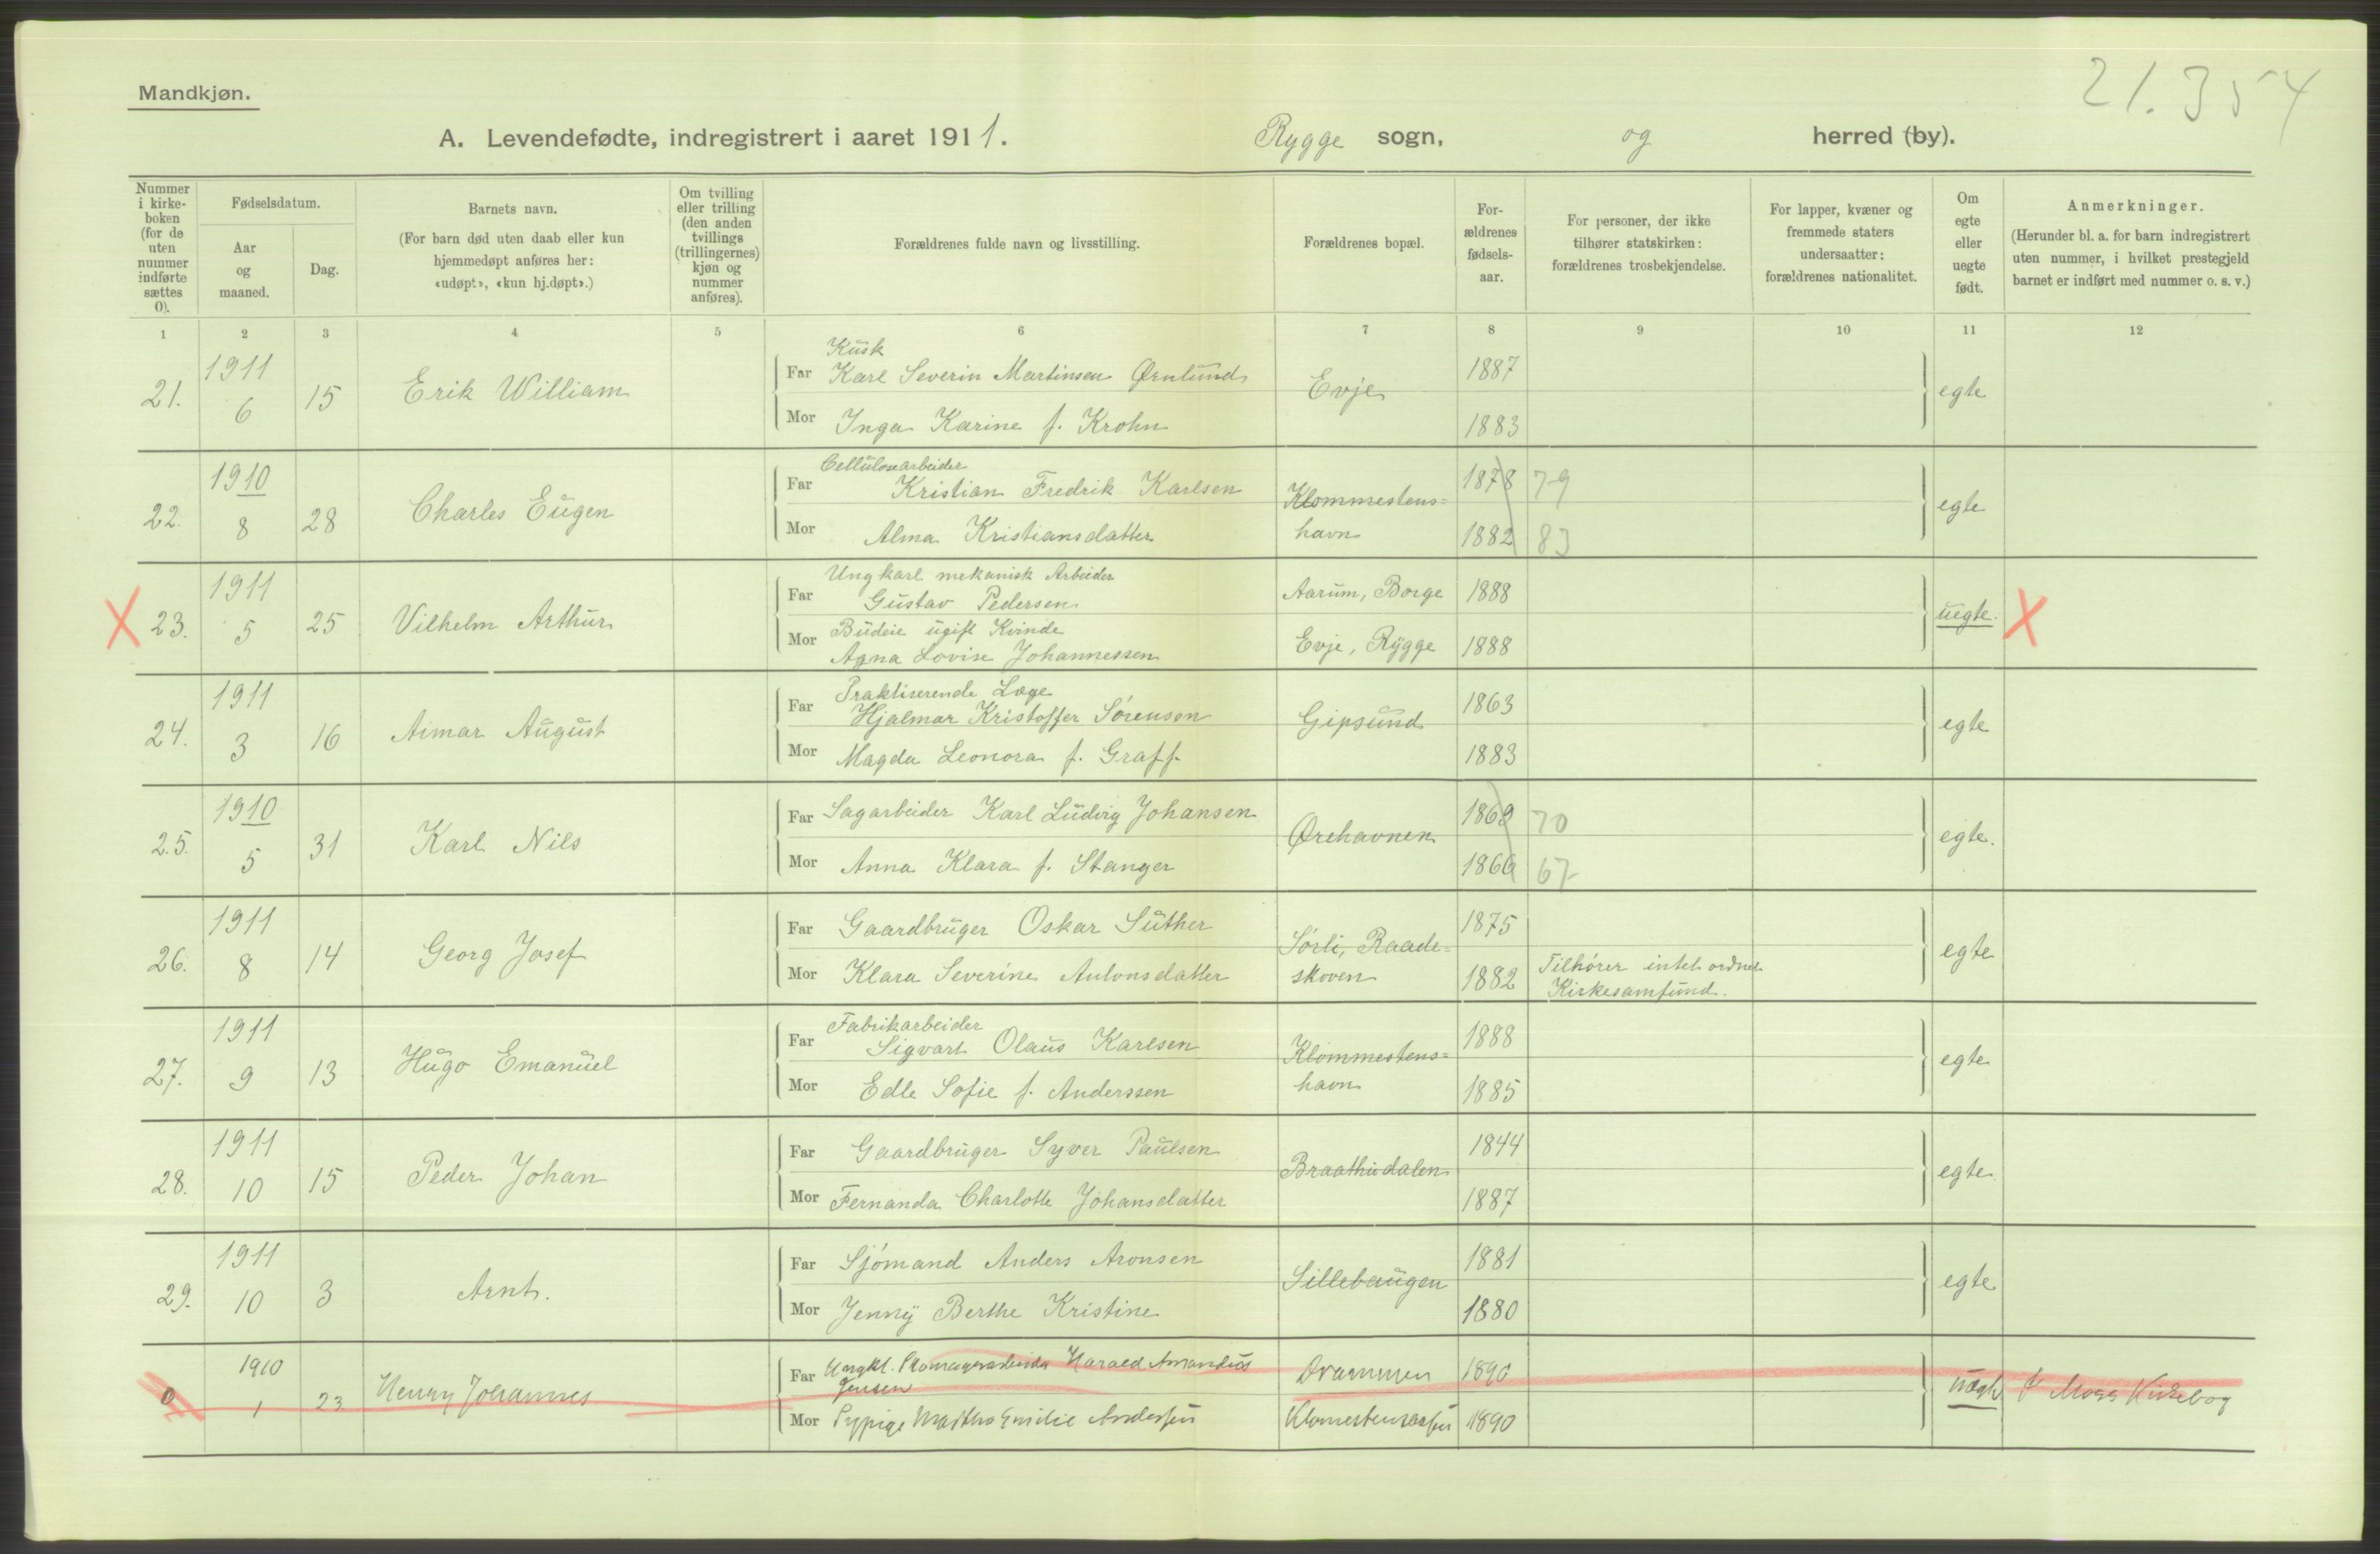 21.354
Mandkjøn.
A. Levendefødte, indregistrert i aaret 1911. Rygge sogn, og herred (by).
Nummer i kirkeboken (for de uten nummer indførte sættes 0).
Fødselsdatum.
Aar og maaned.
Dag.
Barnets navn.
(For barn død uten daab eller kun hjemmedøpt anføres her: «udøpt», «kun hj.døpt».)
Om tvilling eller trilling (den anden tvillings (trillingernes) kjøn og nummer anføres).
Forældrenes fulde navn og livsstilling.
Forældrenes bopæl.
For-
ældrenes
fødsels-
aar.
For personer, der ikke
tilhører statskirken:
forældrenes trosbekjendelse.
For lapper, kvæner og
fremmede staters
undersaatter:
forældrenes nationalitet.
Om
egte
eller
uegte
født.
Anmerkninger.
(Herunder bl. a. for barn indregistrert
uten nummer, i hvilket prestegjeld
barnet er indført med nummer o. s. v.)
1 2 3 4 5 6 7 8 9 10 11 12
Kusk
1911 Far Karl Severin Martinsen Ørnlund 1887
21. 6 15 Erik William Evje egte
Mor Inga Karine f. Krohn 1883
Cellulosearbeider
1910 Far Kristian Fredrik Karlsen 1878 79
22. 8 28 Charles Eugen Klommestens= egte
Mor Alma Kristiansdatter havn 1882 83
Ungkarl mekanisk Arbeider
1911 Far Gustav Pedersen Aarum, Borge 1888
X 23. 5 25 Vilhelm Arthur uegte. X
Budeie ugift Kvinde
Mor Agna Lovise Johannessen Evje, Rygge 1888
Praktiserende Læge
1911 Far Hjalmar Kristoffer Sørensen 1863
24. 3 16 Aimar August Gipsund egte
Mor Magda Leonora f. Graff 1883
1910 Far Sagarbeider Karl Ludvig Johansen 1869 70
25. 5 31 Karl Nils Ørehavnen egte.
Mor Anna Klara f. Stanger 1866 67
1911 Far Gaardbruger Oskar Suther 1875
26. 8 14 Georg Josef Sørli, Raade= egte
Mor Klara Severine Antonsdatter skoven 1882 Tilhører intet ordnet
Kirkesamfund.
Fabrikarbeider
1911 Far Sigvart Olaus Karlsen 1888
27. 9 13 Hugo Emanuel Klommestens= egte
Mor Edle Sofie f. Anderssen havn 1885
1911 Far Gaardbruger Syver Paulsen 1844
28. 10 15 Peder Johan Braathudalen egte
Mor Fernanda Charlotte Johansdatter 1887
1911 Far Sjømand Anders Aronsen 1881
29. 10 3 Arnt. Sillebaugen egte
Mor Jenny Berthe Kristine 1880
1910 Far Ungkl. Harald Amandus Drammen 1890
Jensen
0 1 23 Henny Johannes uegte I Moss Kirkebog
Mor Sypige Martha Emilie Andersen 1890